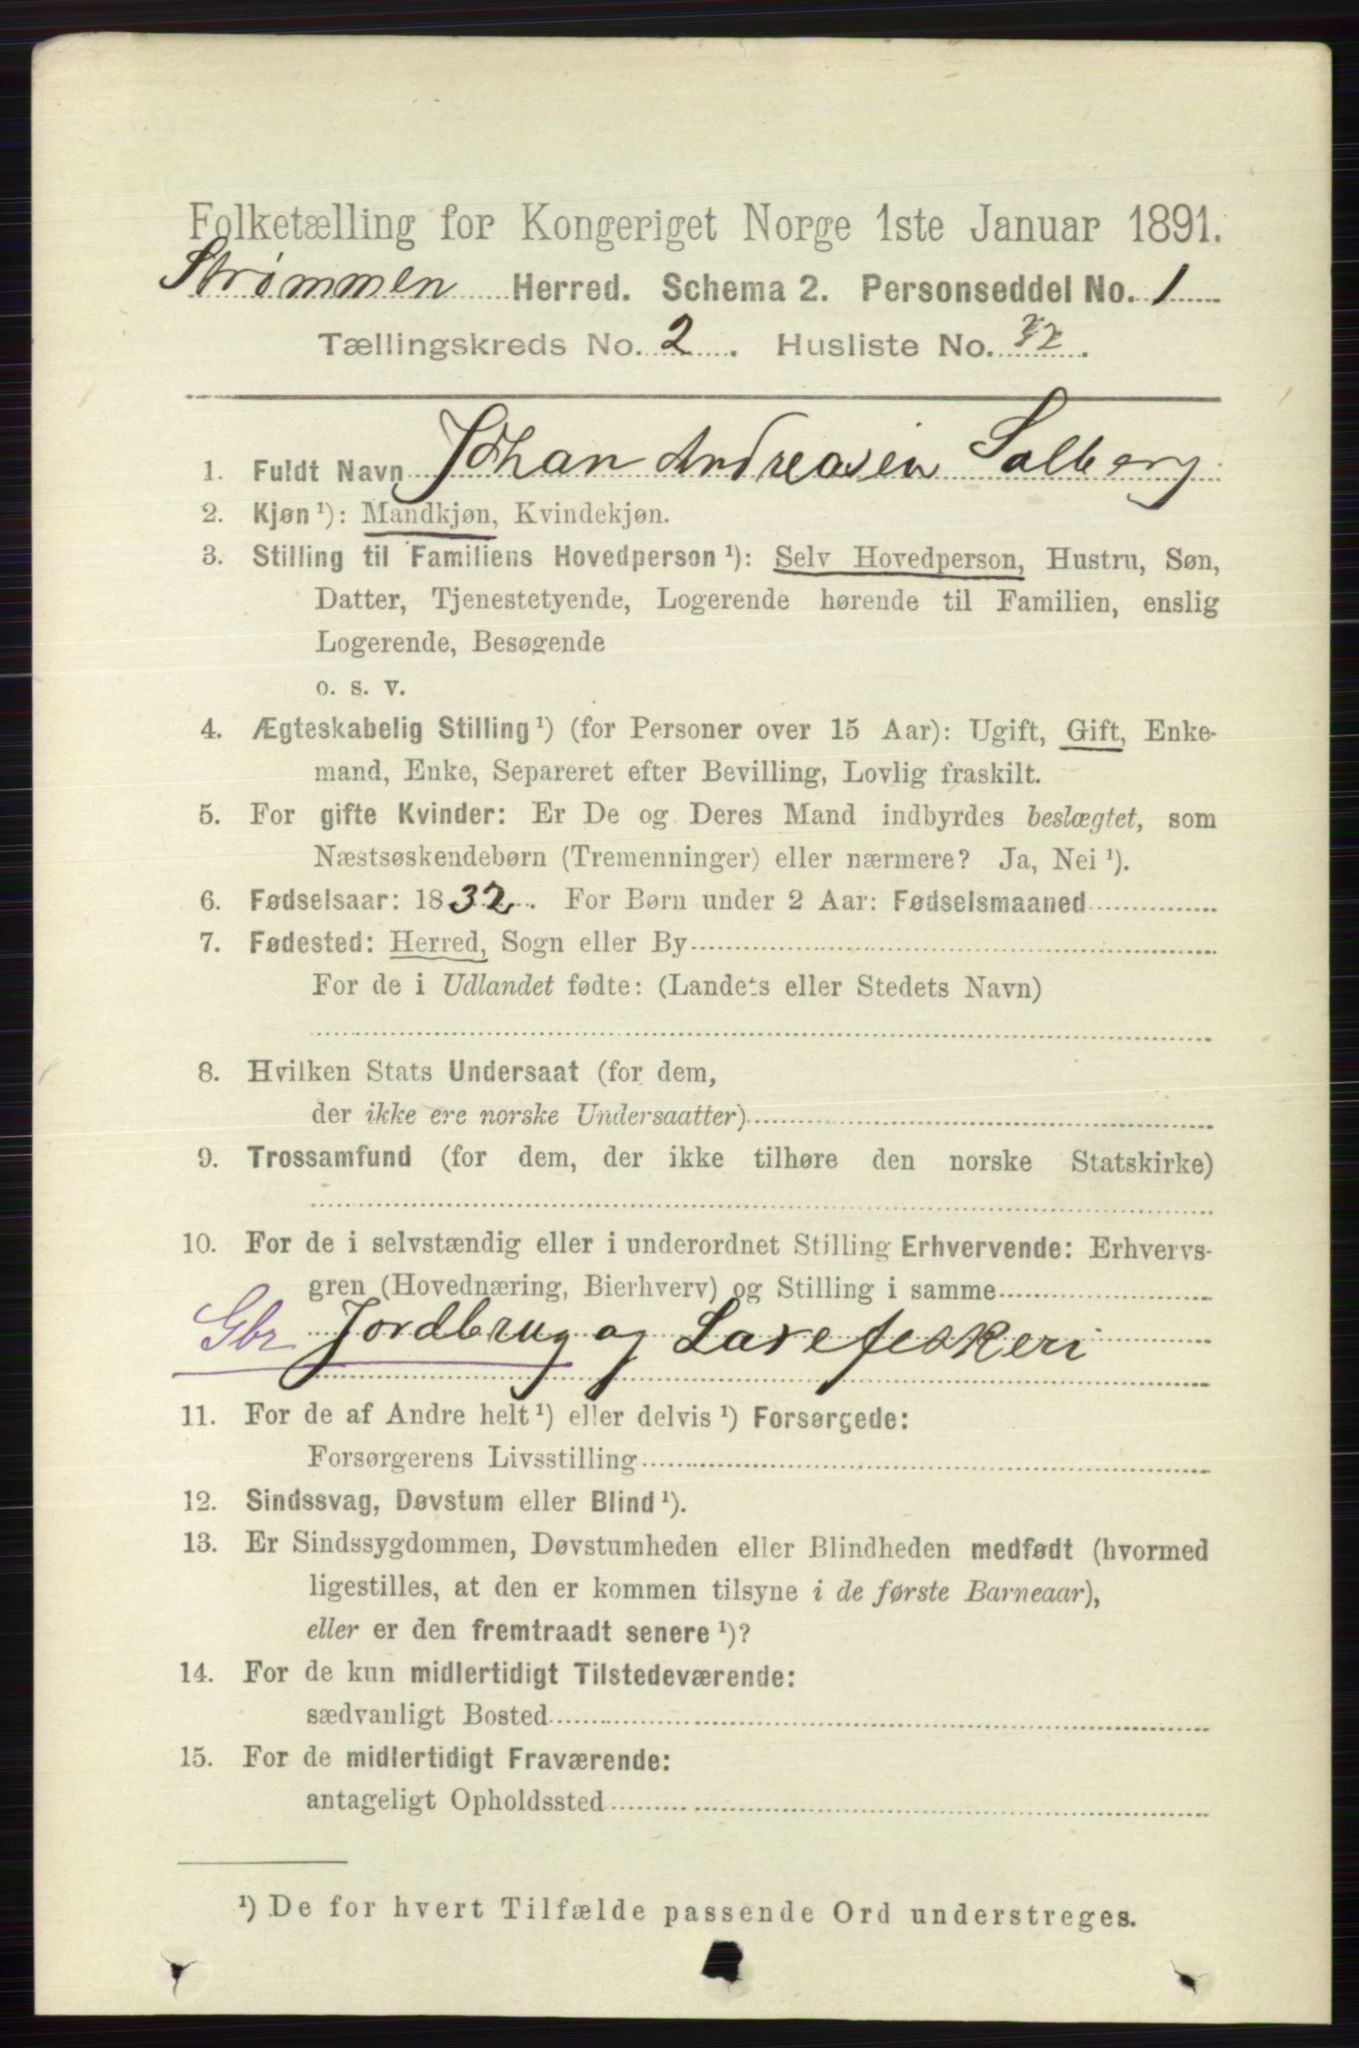 Folketælling for Kongeriget Norge 1ste Januar 1891.
Strømmen Herred. Schema 2. Personseddel No. 1
Tællingskreds No. 2. Husliste No.
1. Fuldt Navn Johan Andreasen Solberg
2. Kjøn ¹): Mandkjøn, Kvindekjøn.
3. Stilling til Familiens Hovedperson ¹): Selv Hovedperson, Hustru, Søn,
Datter, Tjenestetyende, Logerende hørende til Familien, enslig
Logerende, Besøgende
o. s. v.
4. Ægteskabelig Stilling ¹) (for Personer over 15 Aar): Ugift, Gift, Enke-
mand, Enke, Separeret efter Bevilling, Lovlig fraskilt.
5. For gifte Kvinder: Er De og Deres Mand indbyrdes beslægtet, som
Næstsøskendebørn (Tremenninger) eller nærmere? Ja, Nei ¹).
6. Fødselsaar: 1832. For Børn under 2 Aar: Fødselsmaaned
7. Fødested: Herred, Sogn eller By
For de i Udlandet fødte: (Landets eller Stedets Navn)
8. Hvilken Stats Undersaat (for dem,
der ikke ere norske Undersaatter)
9. Trossamfund (for dem, der ikke tilhøre den norske Statskirke)
10. For de i selvstændig eller i underordnet Stilling Erhvervende: Erhvervs-
gren (Hovednæring, Bierhverv) og Stilling i samme
Gbr Jordbrug og Laxefeskeri
11. For de af Andre helt ¹) eller delvis ¹) Forsørgede:
Forsørgerens Livsstilling
12. Sindssvag, Døvstum eller Blind ¹).
13. Er Sindssygdommen, Døvstumheden eller Blindheden medfødt (hvormed
ligestilles, at den er kommen tilsyne i de første Barneaar),
eller er den fremtraadt senere ¹)?
14. For de kun midlertidigt Tilstedeværende:
sædvanligt Bosted
15. For de midlertidigt Fraværende:
antageligt Opholdssted
¹) De for hvert Tilfælde passende Ord understreges.